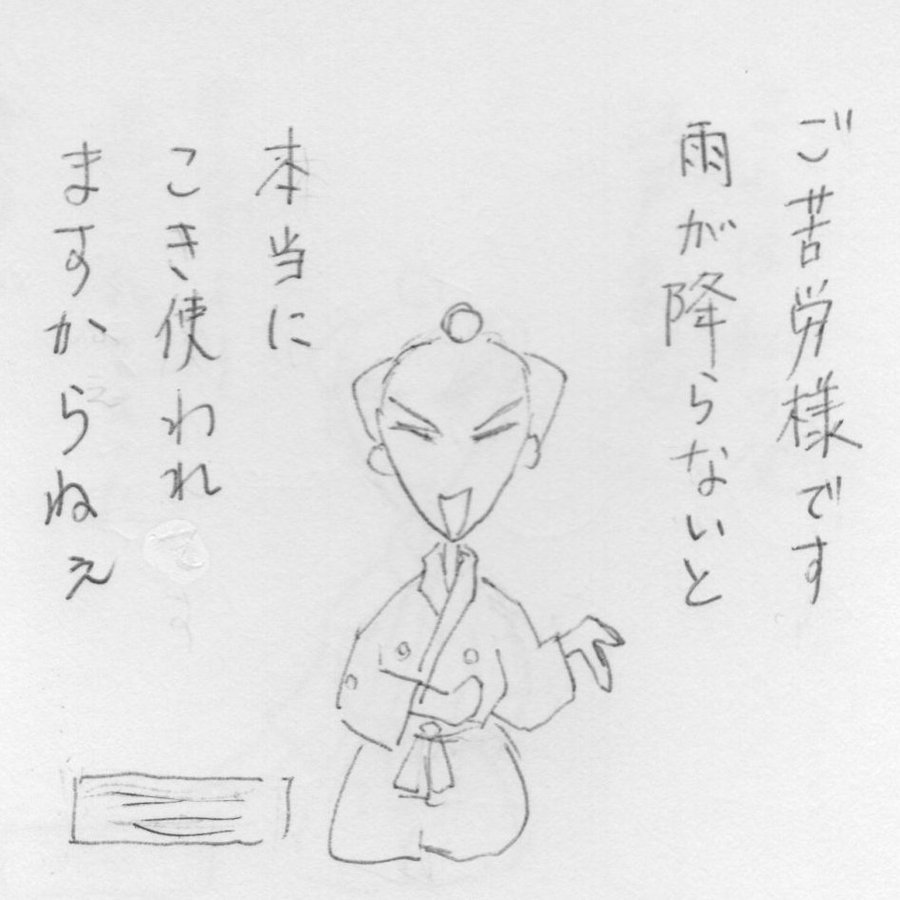 ご苦労様です
雨が降らないと
本当に
こき使われ
ますからねぇ